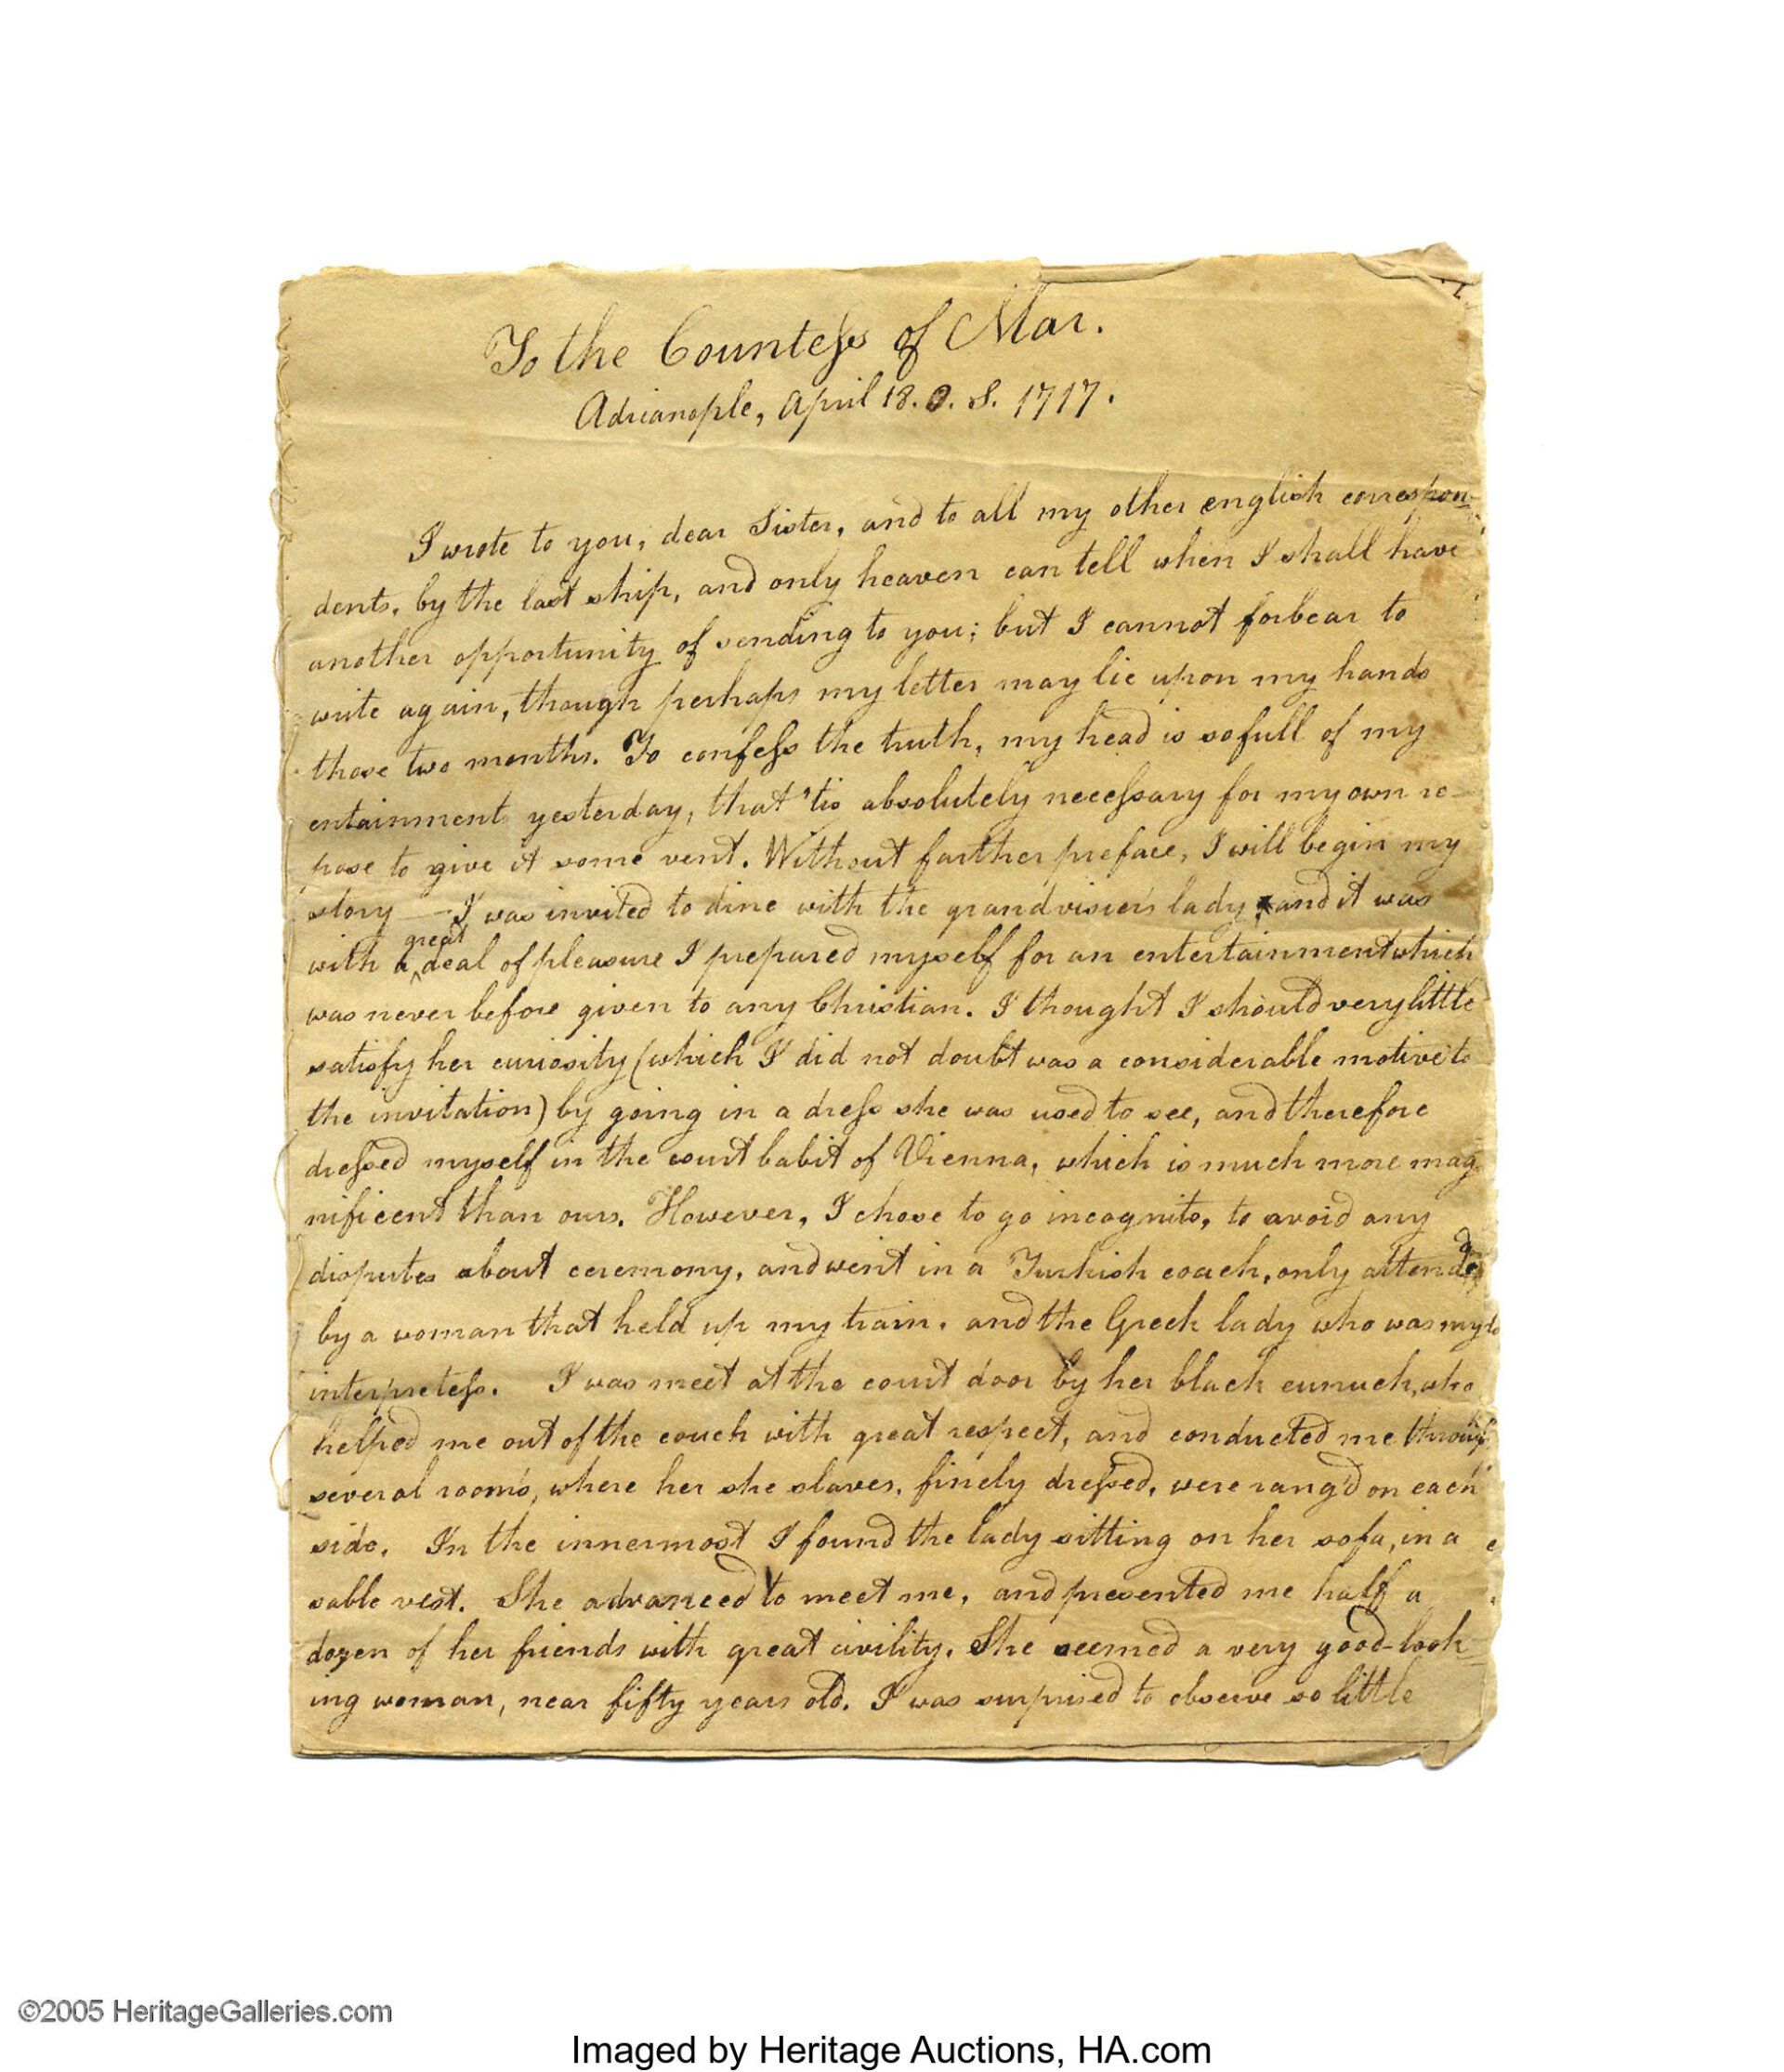 To the Countess of Mar.
Adrianople, April 18. O. S. 1717.
I wrote to you, dear Sister, and to all my other english correspon-
dents, by the last ship, and only heaven can tell when I shall have
another opportunity of sending to you; but I cannot forbear to
write again, though perhaps my letter may lie upon my hands
those two months. To confess the truth, my head is so full of my
entainment yesterday, that 'tis absolutely necessary for my own re-
pose to give it some vent. Without farther preface, I will begin my
story — I was invited to dine with the grand visier's lady, and it was
with a great deal of pleasure I prepared myself for an entertainment which
was never before given to any Christian. I thought I should very little
satisfy her curiosity (which I did not doubt was a considerable motive to
the invitation) by going in a dress she was used to see, and therefore
dressed myself in the court babit of Vienna, which is much more mag-
nificent than ours. However, I chose to go incognito, to avoid any
disputes about ceremony, and went in a Turkish coach, only attended
by a woman that held up my train, and the Greek lady who was my
interpretess. I was meet at the court door by her black eunuch, who
helped me out of the couch with great respect, and conducted me through
several rooms, where her she slaves, finely dressed, were rang'd on each
side. In the innermost I found the lady sitting on her sofa, in a
sable vest. She advanced to meet me, and presented me half a
dozen of her friends with great civility. She seemed a very good-look-
ing woman, near fifty years old. I was surprised to observe so little
©2005 HeritageGalleries.com
Imaged by Heritage Auctions, HA.com